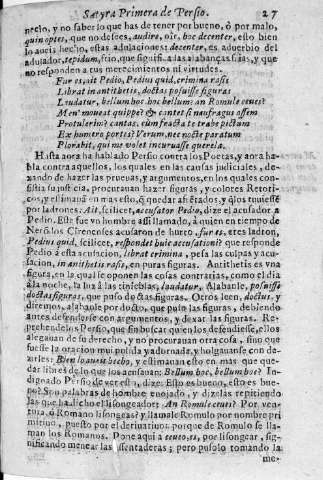 Satyra Primera de Persio. 27
necio, y no saber lo que has de tener por bueno, o por malo,
quin optes, que no desees, audire, oir, hoc decenter, esto bien
lo aueis hecho, estas adulaciones: decenter, es aduerbio del
adulador, tepidum, frio, que significa las alabanças frias, y que
no responden a tus merecimientos ni virtudes.
Fur es, ait Pedio, Pedius quid, crimina rasis
Librat in antithetis, doctas posuisse figuras
Laudatur, bellum hoc hoc bellum: an Romule ceues?
Men' moueat quippe? & cantet si naufragus assem
Protulerim? cantas, cùm fracta te trabe pictum
Ex humero portes? Verum, nec nocte paratum
Plorabit, qui me volet incuruasse querela.
Hasta aora ha hablado Persio contra los Poetas, y aora ha-
bla contra aquellos, los quales en las causas judiciales, de-
xando de hazer las prueuas, y argumentos, en los quales con-
sistia su justicia, procurauan hazer figuras, y colores Retori-
cos, y estimauã en mas esto, que quedar afrẽtados, y
por ladrones. Ait, scilicet, accusator Pedio, dize el acusador a
Pedio. Este fue vn hombre assi llamado, à quien en tiempo de
Nerõ los Cirenenses acusaron de hurto, fur es, eres ladron,
Pedius quid, scilicet, respondet huic accusationi? que responde
Pedio à esta acusacion, librat crimina, pesa las culpas y acu-
sacion, in antithetis rasis, en puras figuras. Antithetis es vna
figura, en la qual se oponen las cosas contrarias, como el dia
à la noche, la luz à las tinieblas, laudatur, Alabanle, posuisse
doctas figuras, que puso doctas figuras. Otros leen, doctus, y
diremos, alabanle por docto, que puso las figuras, debiendo
antes defenderse con argumentos, y dexar las figuras. Re-
prehendelos Persio, que sin buscar quien los defendiesse, ellos
alegauan de su derecho, y no procurauan otra cosa, sino que
fuesse la oracion mui polida y adornada, y holgauanse con oe-
zirles: Bien lo aueis hecho, y estimauan esto en mas que que-
dar libres de lo que los acusauan: Bellum hoc, bellum hoc? In-
digeado Persio de ver esto, dize: Esto es bueno, esto es bue-
no? Son palabras de hombre enojado, y dizelas repitiendo
las que ha dicho el lisongeador: An Romule ceues? Por ven-
tura, ô Romano lisongeas? y llamale Romulo por nombre pri
mitiuo, puesto por el deriuatiuo: porque de Romulo se lla-
man los Romanos. Pone aqui a ceueo, es, por lisongear, sig-
nificando menear las assentaderas; pero pusolo tomando la
me-